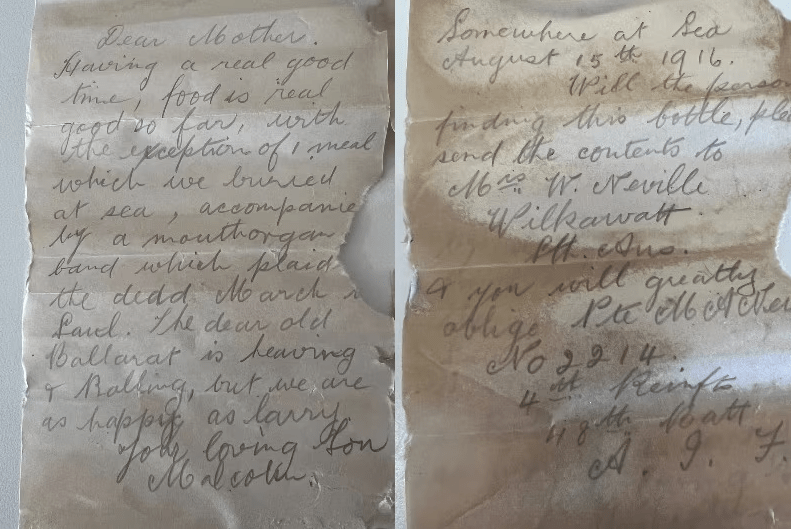 Dear Mother.
Having a real good
time, food is real
good so far, with
the exception of 1 meal
which we buried
at sea, accompanie
by a mouthorgan
band which plaid
the dedd March
Saul. The dear old
Ballarat is heaving
& Balling, but we are
as happy as larry.
Your loving Son
Malcolm.
Somewhere at Sea
August 15th 1916.
Will the person
finding this bottle, plea
send the contents to
Mrs W. Neville
Wilkawatt
Sth. Aus.
& you will greatly
oblige Pte M A Nev
No 2214.
4th Reinfts
48th Batt
A. I. F.